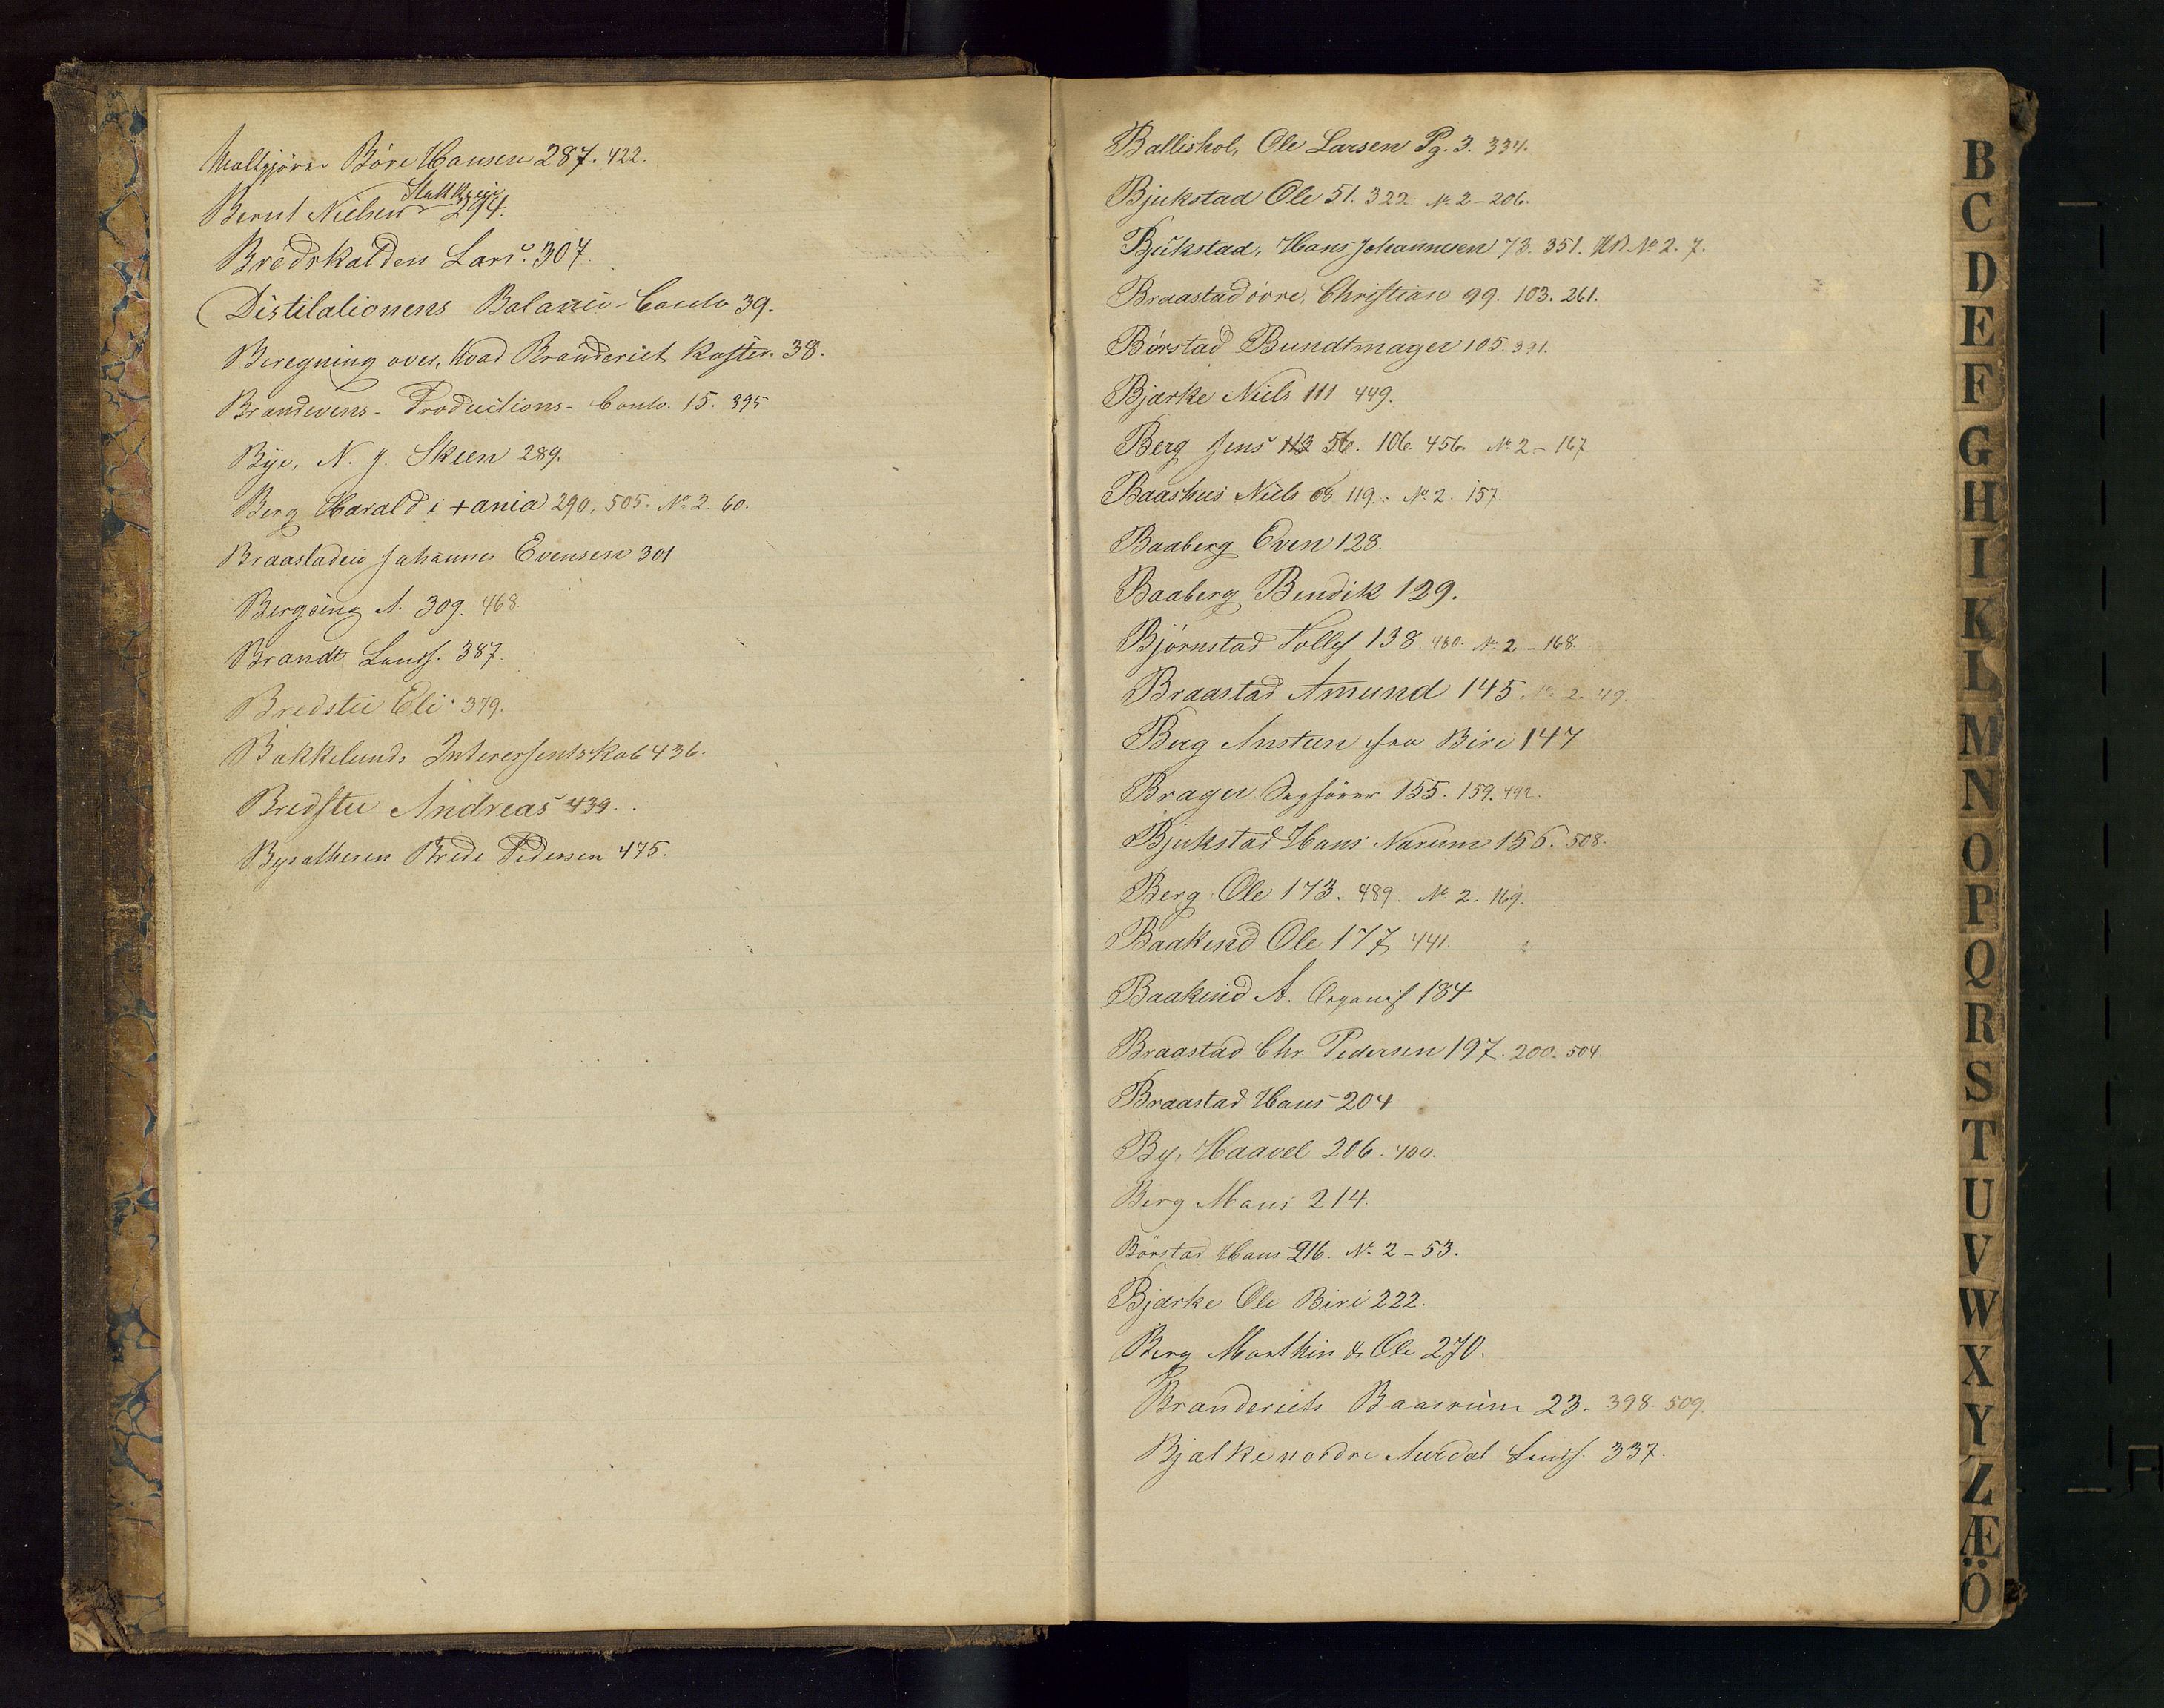 Maltgjörer Böre Hansen 287. 422.
Bernt Nielsen 294.
Bredskalden Lars. 307.
Distilationens Balance-Conto 39.
Beregning over, hvad Brænderiet koster. 38.
Brændevins-Productions-Conto. 15. 395
Bye, N. J. Skeen 289.
Berg Harald i +ania 290. 505. No 2. 60.
Braastadeie Johannes Evensen 301
Bergseng A. 309. 468.
Brandt Lends. 387.
Bredstu Eli 379.
Bakkelunds Interessentskab 436.
Bredstu Andreas 439.
Brede Pedersen 475.
Ballishol, Ole Larsen Pg. 3. 334.
Bjukstad Ole 51. 322. No 2-206.
Bjukstad, Hans Johannesen 73. 351. No 2. 7.
Braastad övre, Christian 99. 103. 261.
Börstad Bundtmager 105. 391.
Bjærke Niels 111 449.
Berg Jens 113 56. 106. 456. No 2-167
Baashus Niels 68 119. No 2. 157.
Baaberg Even 128.
Baaberg Bendik 129.
Björnstad Tollef 138. 480. No 2-168.
Braastad Amund 145. No 2. 49.
Berg Ansteen fra Biri 147
Brager Sagförer 155. 159. 492.
Bjukstad Hans Narum 156. 508.
Berg Ole 173. 489. No 2. 169.
Baakind Ole 177, 441.
Baakind A. Organist 184
Braastad Chr. Pedersen 197. 200. 504.
Braastad Hans 204
By, Haavel 206. 400.
Berg Mons 214.
Börstad Hans 216. No 2-53.
Bjærke Ole Biri 222.
Berg Marthin & Ole 270.
Brænderiets Baasrum 23. 398. 509.
Bjælke nordre Aurdal Lends. 337.
B
C
D
E
F
G
H
I
K
L
M
N
O
P
Q
R
S
T
U
V
W
X
Y
Z
Æ
Ö